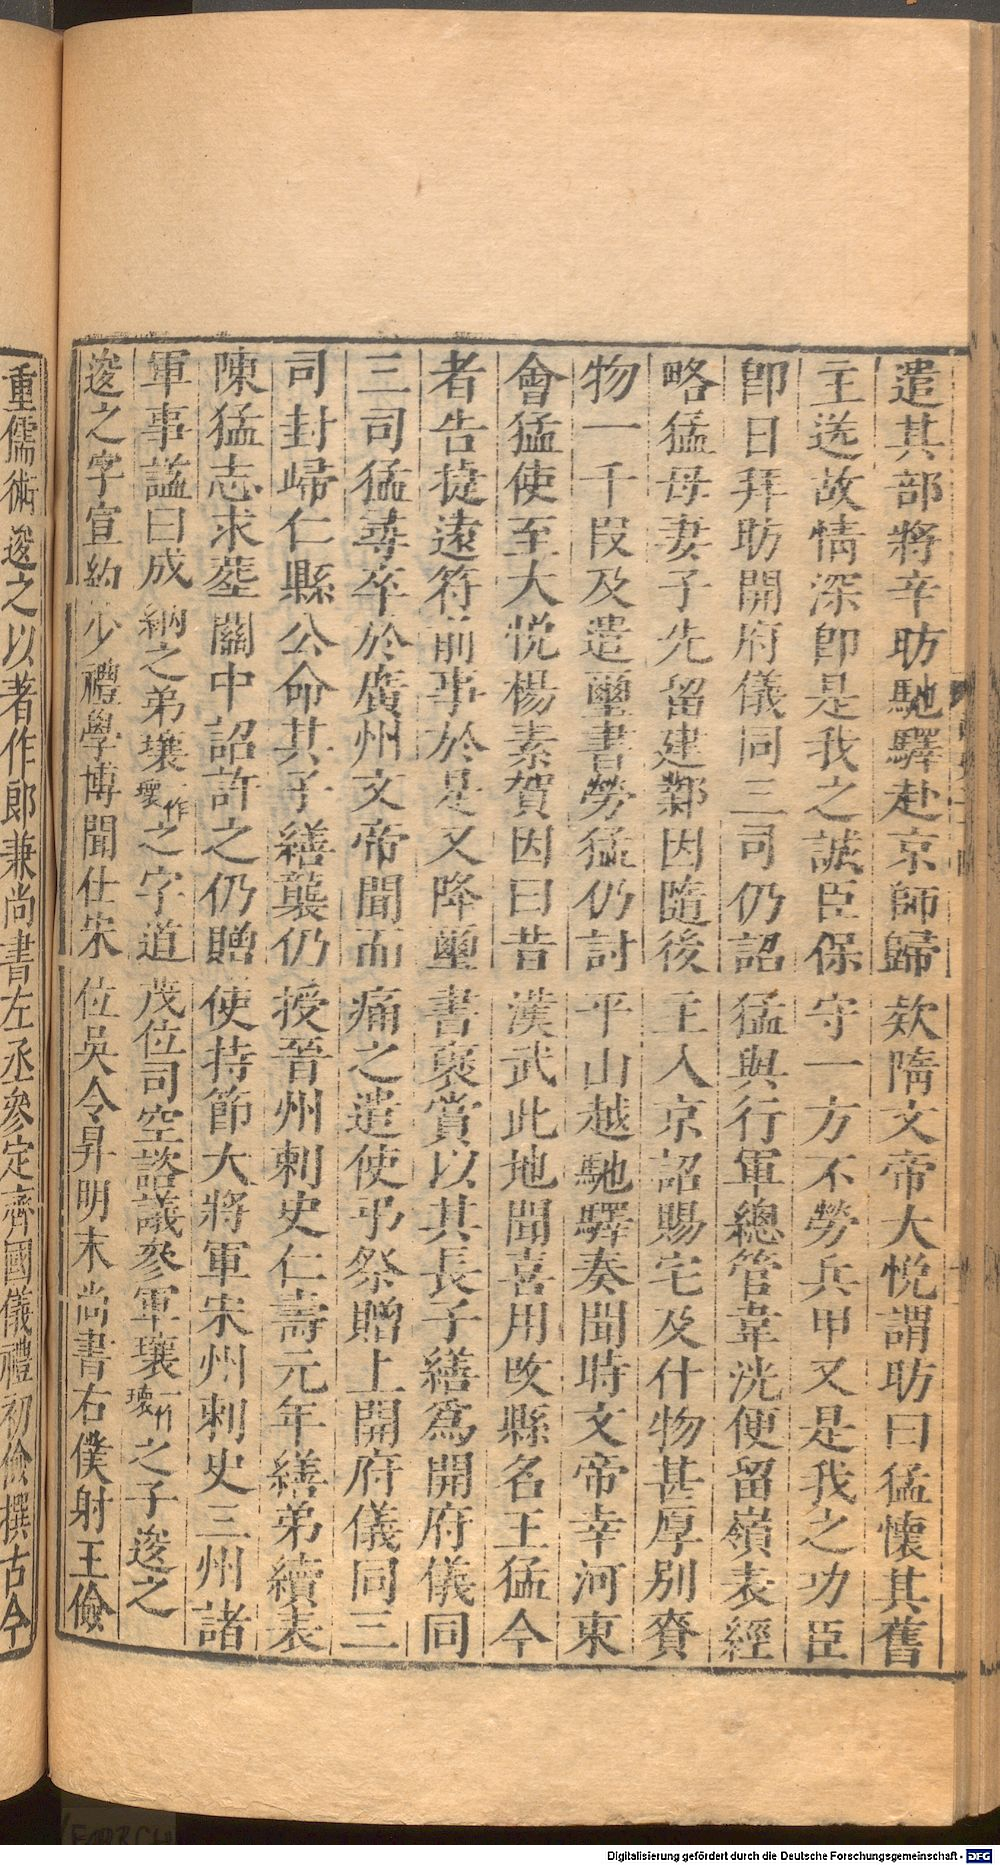 遣其部將辛昉馳驛赴京師歸欵隋文帝大悅謂昉曰猛懷其舊
主送故情深卽是我之誠臣保守一方不勞兵甲又是我之功臣
卽日拜昉開府儀同三司仍詔猛與行軍總管韋洸便留嶺表經
略猛母妻子先留建鄴因隨後主入京詔賜宅及什物甚厚別賚
物一千段及遣璽書勞猛仍討平山越馳驛奏聞時文帝幸河東
會猛使至大悅楊素賀因曰昔漢武此地聞喜用改縣名王猛今
者告捷遠符前事於是又降璽書褒賞以其長子繕爲開府儀同
三司猛尋卒於廣州文帝聞而痛之遣使弔祭贈上開府儀同三
司封歸仁縣公命其子繕襲仍授晉州刺史仁壽元年繕弟續表
陳猛志求葬關中詔許之仍贈使持節大將軍宋州刺史三州諸
軍事謚曰成 納之弟壤一作瓌之字道茂位司空諮議參軍壤一作瓌之子逡之
逡之字宣約少禮學博聞仕宋位吳令昇明末尚書右僕射王儉
重儒術逡之以著作郎兼尚書左丞參定齊國儀禮初儉撰古今
Digitalisierung gefördert durch die Deutsche Forschungsgemeinschaft - DFG